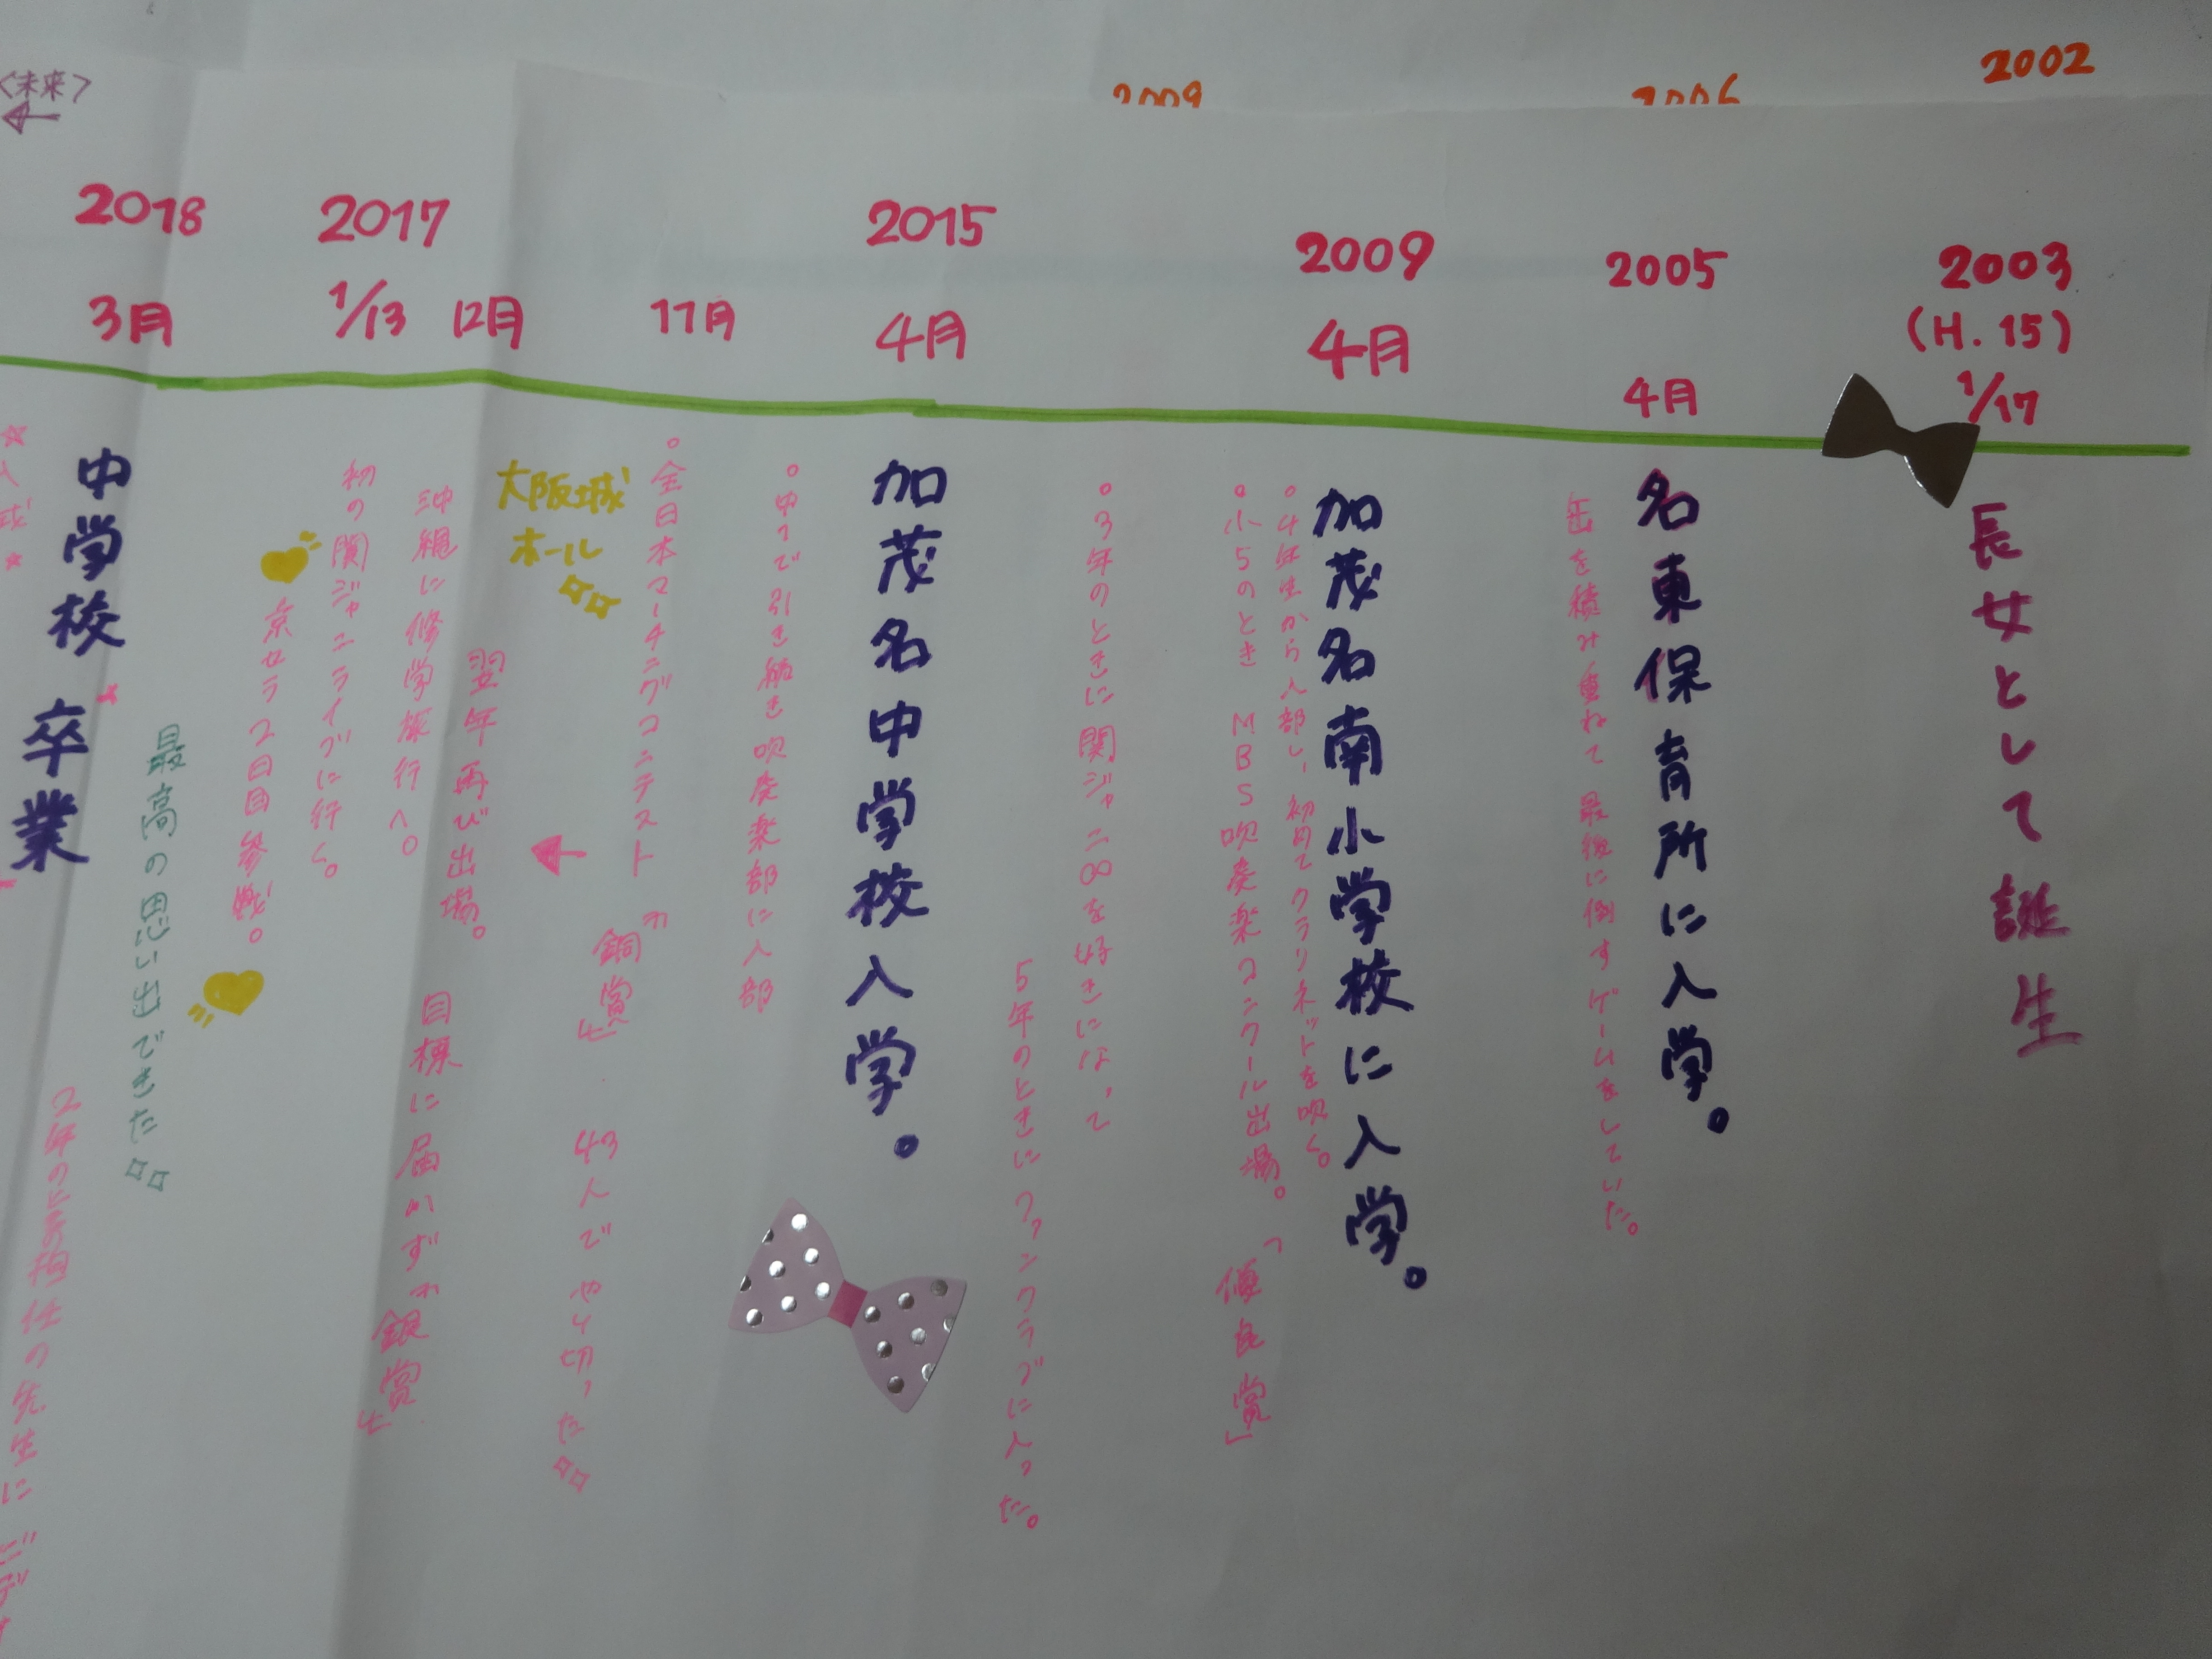 2002
2003
(H.15)
1/17
長女として誕生
2005
4月
名東保育所に入学。
缶を積み重ねて 最後に倒すゲームをしていた。
2009
4月
加茂名南小学校に入学。
。4年生から入部し、初めてクラリネットを吹く。
。小5のとき MBS吹奏楽コンクール出場。「優良賞」
。3年のときに関ジャニ∞を好きになって
5年のときにファンクラブに入った。
2015
4月
加茂名中学校入学。
。中1で引き続き吹奏楽部に入部
11月
。全日本マーチングコンテスト
"銅賞"
43人でやり切った
大阪城
ホール
12月
翌年再び出場。
目標に届かず"銀賞"
2017
1/13
沖縄に修学旅行へ。
初の関ジャニライブに行く。
京セラ2日目参戦。
最高の思い出できた
2018
3月
中学校 卒業
<未来>
←
2009
2006